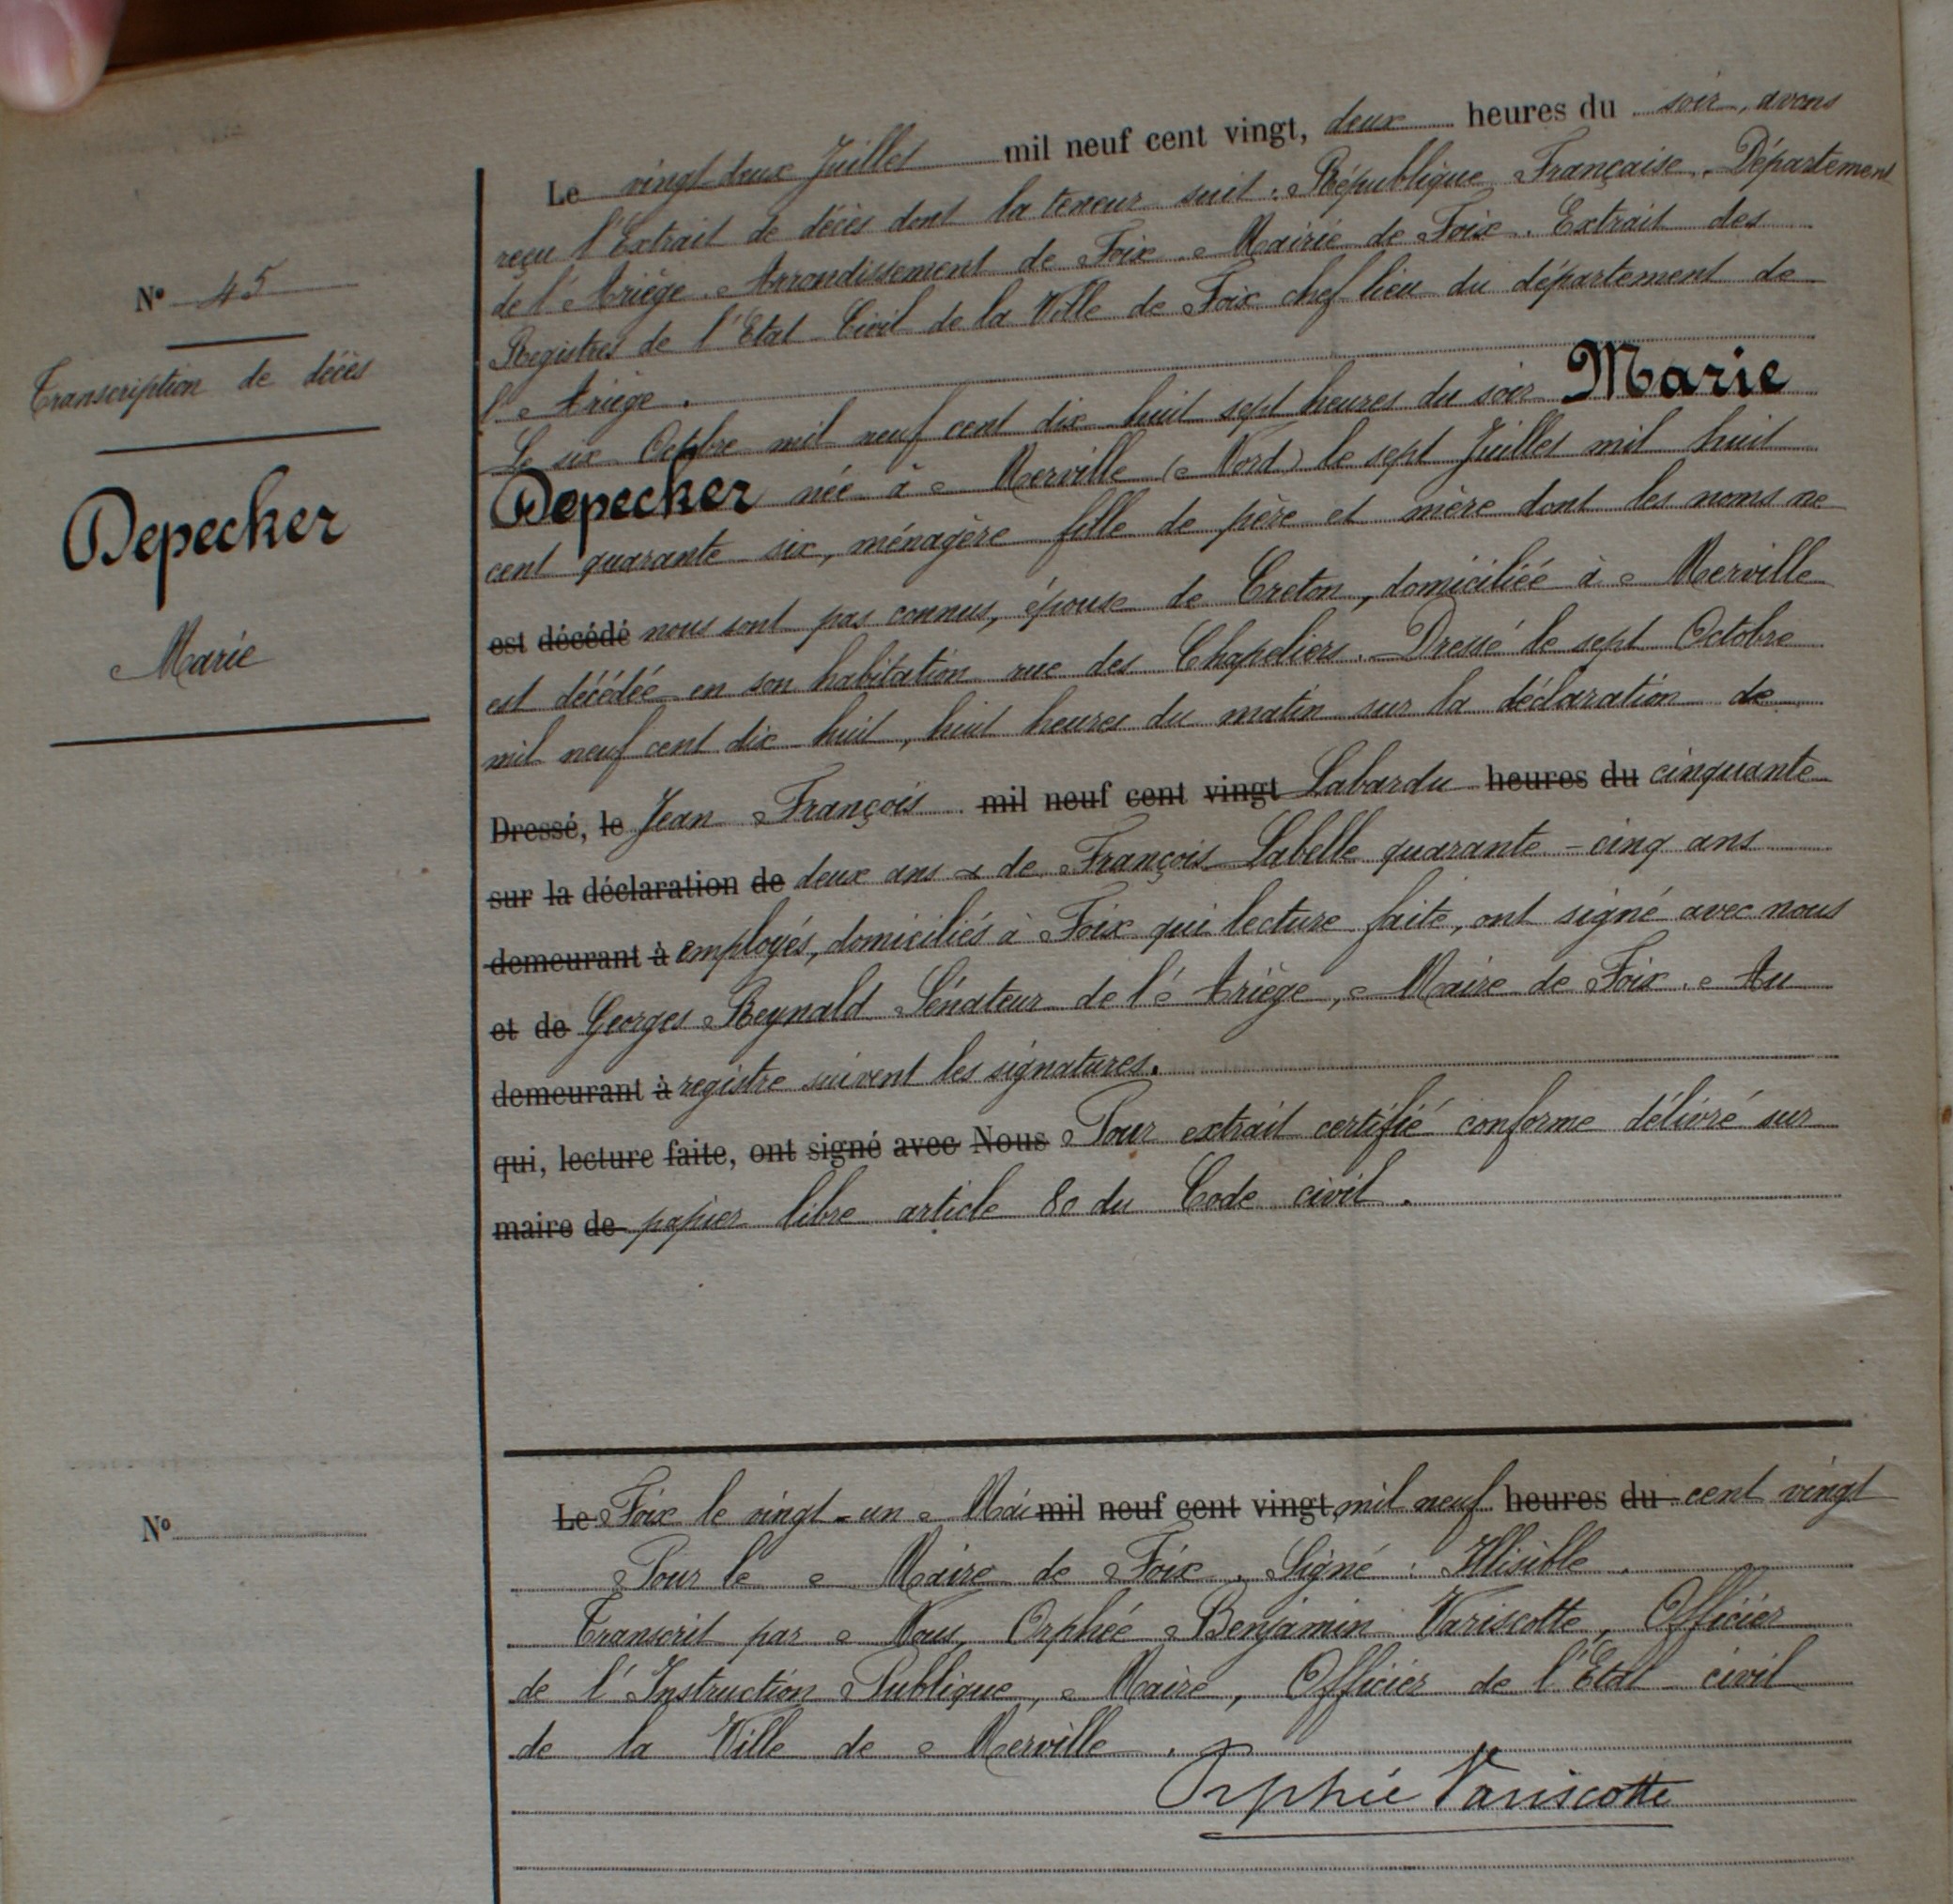 Nº 45
Transcription de décès
Depecker
Marie
Le vingt-deux Juillet mil neuf cent vingt, deux heures du soir, avons
reçu l'Extrait de décès dont la teneur suit : République Française. Département
de l'Ariège. Arrondissement de Foix. Mairie de Foix. Extrait des
Registres de l'Etat-Civil de la Ville de Foix chef lieu du département de
l'Ariège.
Le six Octobre mil neuf cent dix huit sept heures du soir Marie
Depecker née à Merville (Nord) le sept Juillet mil huit
cent quarante six, ménagère fille de père et mère dont les noms ne
est décédé nous sont pas connus, épouse de Creton, domiciliée à Merville
est décédée en son habitation rue des Chapeliers. Dressé le sept Octobre
mil neuf cent dix-huit, huit heures du matin sur la déclaration de
Dressé, le Jean François mil neuf cent vingt Labardu heures du cinquante
sur la déclaration de deux ans & de François Labelle quarante-cinq ans
demeurant à employés, domiciliés à Foix qui lecture faite, ont signé avec nous
et de Georges Reynald Sénateur de l'Ariège, Maire de Foix. Au
demeurant à registre suivent les signatures.
qui, lecture faite, ont signé avec Nous Pour extrait certifié conforme délivré sur
maire de papier libre article 80 du Code civil.
Nº
Le Foix le vingt-un Mai mil neuf cent vingt, mil neuf heures du cent vingt
Pour le Maire de Foix. Signé : Illisible.
Transcrit par Nous, Orphée Benjamin Variscotte, Officier
de l'Instruction Publique, Maire, Officier de l'Etat-civil
de la Ville de Merville.
Orphée Variscotte